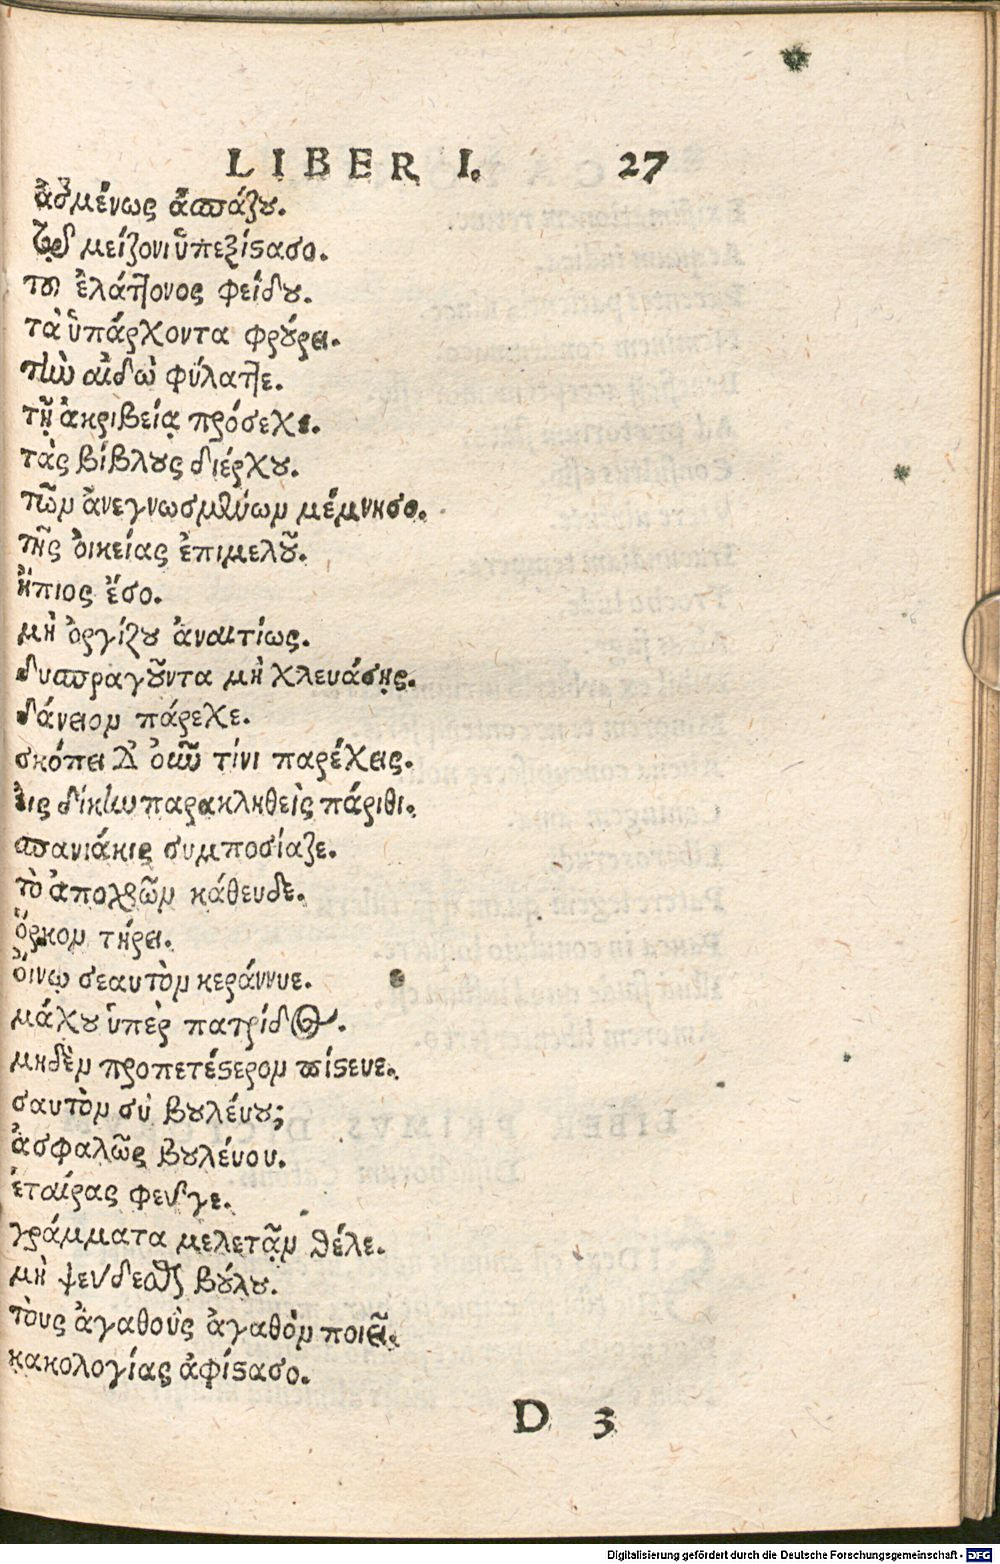 LIBER I. 27
ἀσμένως ἀσπάζου.
τῷ μείζονι ὑπεξίστασο.
τοῦ ἐλάττονος φείδου.
τὰ ὑπάρχοντα φρούρει.
τὴν αἰδὼ φύλαττε.
τῇ ἀκριβείᾳ πρόσεχε.
τὰς βίβλους διέρχου.
τῶν ἀνεγνωσμένων μέμνησο.
τῆς οἰκείας ἐπιμελοῦ.
ἤπιος ἔσο.
μὴ ὀργίζου ἀναιτίως.
δυσπραγοῦντα μὴ χλευάσῃς.
δάνειον πάρεχε.
σκόπει δ' οὖν τίνι παρέχεις.
εἰς δίκην παρακληθεὶς πάριθι.
σπανιάκις συμποσίαζε.
τὸ ἀποχρῶν κάθευδε.
ὅρκον τήρει.
οἴνῳ σεαυτὸν κεράννυε.
μάχου ὑπὲρ πατρίδος.
μηδὲν προπετέστερον πίστευε.
σαυτὸν σὺ βουλεύου;
ἀσφαλῶς βουλεύου.
ἑταίρας φεῦγε.
γράμματα μελετᾷν θέλε.
μὴ ψεύδεσθαι βούλου.
τοὺς ἀγαθοὺς ἀγαθὸν ποιεῖ.
κακολογίας ἀφίστασο.
D 3
Digitalisierung gefördert durch die Deutsche Forschungsgemeinschaft - DFG